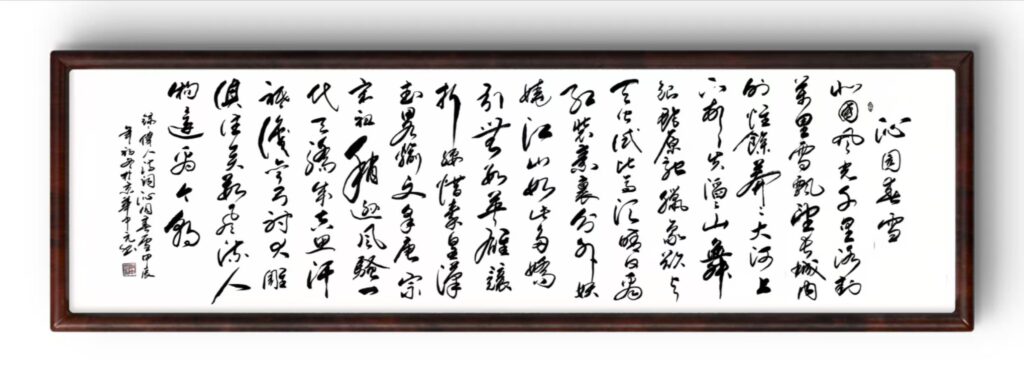 沁园春雪
北國风光千里冰封
萬里雪飘望长城内
外惟餘莽〻大河上
下顿失滔〻山舞
银蛇原驰蜡象欲与
天公试比高须晴日看
红装素裹分外妖
娆江山如此多娇
引无数英雄竞
折腰惜秦皇汉
武略输文采唐宗
宋祖稍逊风骚一
代天骄成吉思汗
祇识弯弓射大雕
俱往矣数风流人
物还看今朝
录伟人诗词沁园春雪甲辰
年初冬於京华中元书